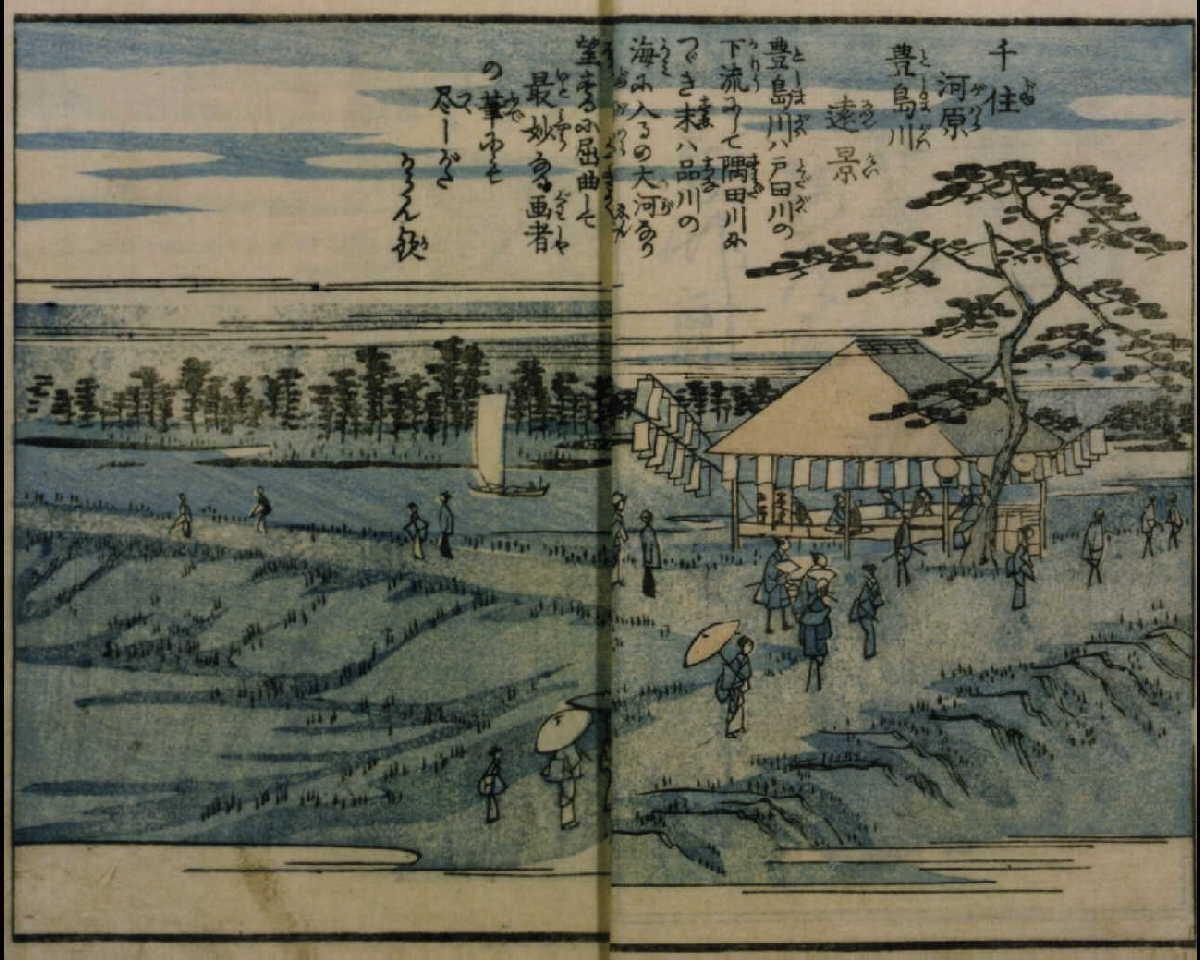 千住
河原
豊島川
遠景
豊島川ハ戸田川の
下流にして隅田川に
つゞき末ハ品川の
海に入るの大河なり
望むに屈曲して
最妙なる画者
の筆にも
尽しがた
からん歟